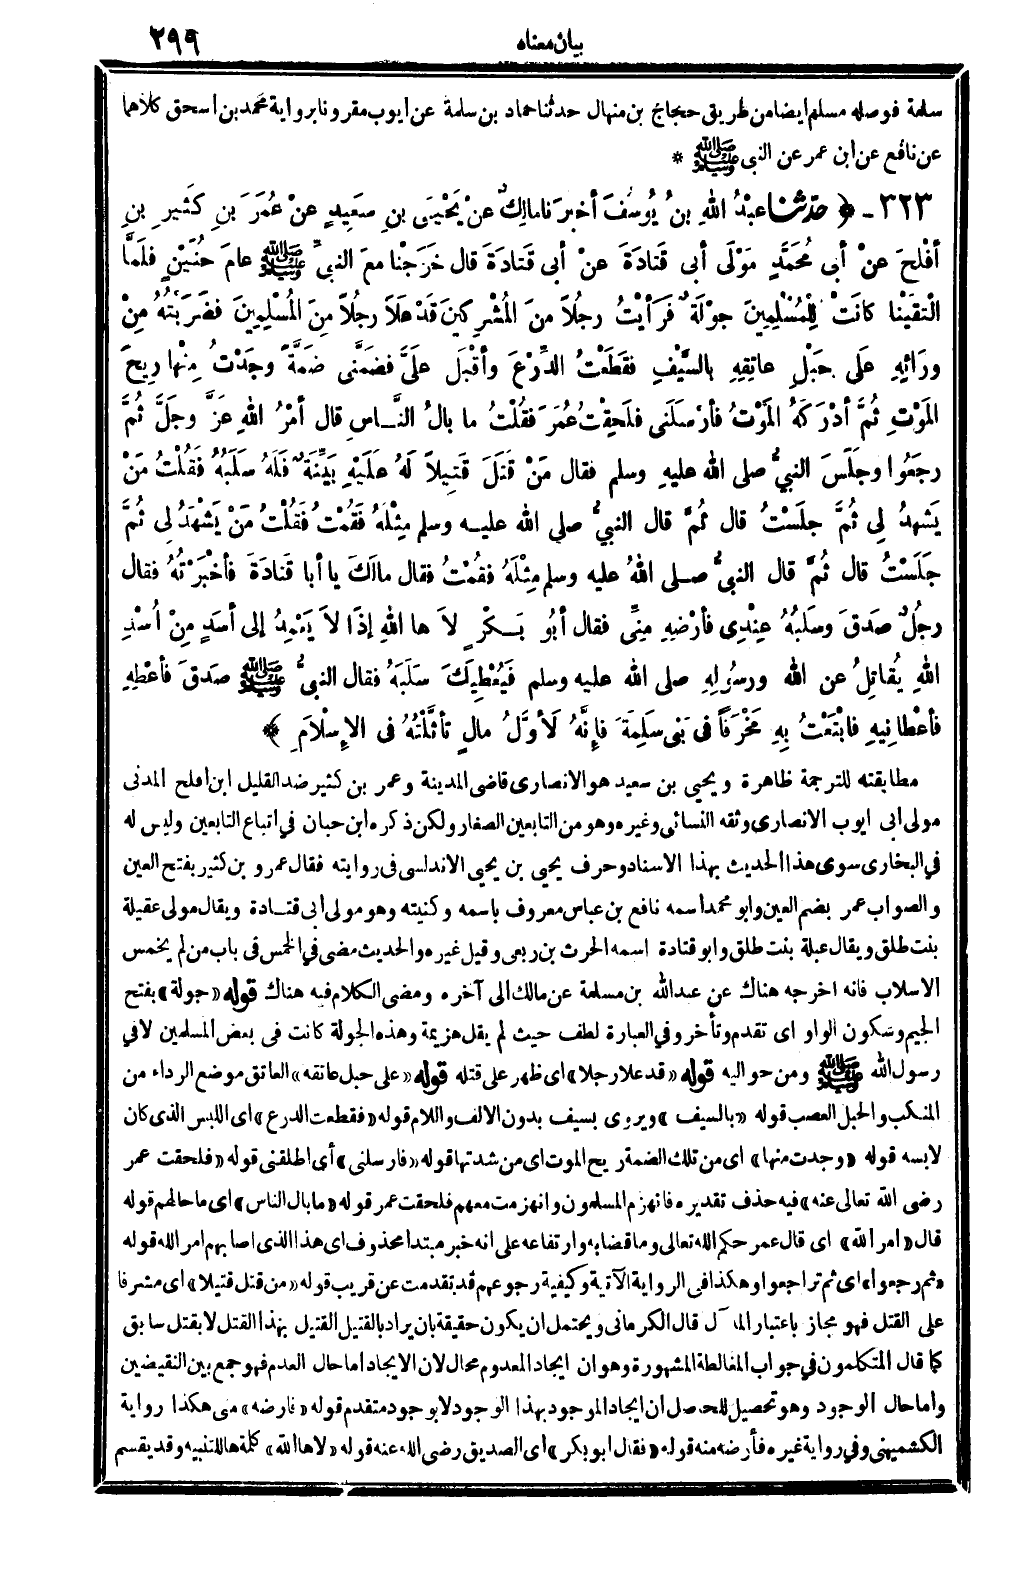 بيان معناه
٢٩٩
سلمة فوصله مسلم ايضا من طريق حجاج بن منهال حدثنا حماد بن سلمة عن ايوب مقرونا برواية محمد بن اسحق كلاهما
عن نافع عن ابن عمر عن النبي ﷺ *
٣٢٣ - ﴿ حدثنا عَبْدُ اللهِ بنُ يُوسُفَ أخبرَنا مالِكٌ عنْ يَحْيَى بنِ سَعِيدٍ عنْ عُمَرَ بنِ كَثِيرِ بنِ
أفْلَحَ عنْ أبى مُحَمَّدٍ مَوْلَى أبى قَتادَةَ عنْ أبى قَتادَةَ قال خَرَجْنا معَ النبيِّ ﷺ عامَ حُنَيْنٍ فلَمَّا
الْتقَيْنا كانَتْ لِلْمُسْلِمِينَ جوْلَةٌ فَرَأيْتُ رجُلاً منَ المُشْرِكِينَ قَدْ عَلاَ رجُلاً منَ المُسْلِمِينَ فضَرَبْتُهُ مِنْ
ورَائِهِ عَلَى حَبْلِ عاتِقِهِ بالسَّيْفِ فقَطَعْتُ الدِّرْعَ وأقْبَلَ عَلَىَّ فضَمَّنى ضَمَّةً وجَدْتُ مِنْها رِيحَ
المَوْتِ ثُمَّ أدْرَكَهُ المَوْتُ فأرْسَلَنى فلَحِقْتُ عُمَرَ فقُلْتُ ما بالُ النَّاسِ قال أمْرُ اللهِ عَزَّ وجلَّ ثُمَّ
رجَعُوا وجَلَسَ النبيُّ صلى الله عليهِ وسلم فقال مَنْ قَتَلَ قَتِيلاً لَهُ عَلَيْهِ بَيِّنَةٌ فَلَهُ سَلَبُهُ فقُلْتُ مَنْ
يَشْهدُ لِى ثُمَّ جلَسْتُ قال ثُمَّ قال النبيُّ صلى الله عليه وسلم مِثْلَهُ فَقُمْتُ فقُلْتُ مَنْ يَشْهَدُ لِى ثُمَّ
جَلَسْتُ قال ثُمَّ قال النبيُّ صلى اللهُ عليه وسلم مِثْلَهُ فقُمْتُ فقال مالَكَ يا أبا قَتادَةَ فأخْبَرْتُهُ فقال
رجُلٌ صَدَقَ وسَلَبُهُ عِنْدِى فأرْضِهِ مِنِّى فقال أبُو بَكْرٍ لاَ ها اللهِ إذًا لاَ يَعْمِدُ إلى أسَدٍ مِنْ أُسْدِ
اللهِ يُقاتِلُ عنِ الله ورسُولِهِ صلى الله عليه وسلم فَيُعْطِيَكَ سَلَبَهُ فقال النبيُّ ﷺ صدَقَ فأعْطِهِ
فأعْطانِيهِ فابْتَعْتُ بِهِ مَخْرَفًا فى بَنى سَلِمَةَ فإنَّهُ لَأوَّلُ مالٍ تأثَّلْتُهُ فى الإِسْلاَمِ ﴾
مطابقته للترجمة ظاهرة ويحيى بن سعيد هو الانصارى قاضى المدينة وعمر بن كثير ضد القليل ابن افلح المدنى
مولى أبى ايوب الانصارى وثقه النسائى وغيره وهو من التابعين الصغار ولكن ذكره ابن حبان في اتباع التابعين وليس له
في البخارى سوى هذا الحديث بهذا الاسناد وحرف يحيى بن يحيى الاندلسى فى روايته فقال عمرو بن كثير بفتح العين
والصواب عمر بضم العين وابو محمد اسمه نافع بن عباس معروف باسمه وكنيته وهو مولى أبى قتادة ويقال مولى عقيلة
بنت طلق ويقال عبلة بنت طلق وابو قتادة اسمه الحرث بن ربعى وقيل غيره والحديث مضى في الخمس فى باب من لم يخمس
الاسلاب فانه اخرجه هناك عن عبدالله بن مسلمة عن مالك الى آخره ومضى الكلام فيه هناك قوله «جولة» بفتح
الجيم وسكون الواو اى تقدم وتأخر وفي العبارة لطف حيث لم يقل هزيمة وهذه الجولة كانت فى بعض المسلمين لا في
رسول الله ﷺ ومن حواليه قوله «قد علا رجلا» اى ظهر على قتله قوله «على حبل عاتقه» العاتق موضع الرداء من
المنكب والحبل العصب قوله «بالسيف» ويروى بسيف بدون الالف واللام قوله «فقطعت الدرع» اى اللبس الذى كان
لابسه قوله «وجدت منها» اى من تلك الضمة ريح الموت اى من شدتها قوله «فارسلنى» أى اطلقنى قوله «فلحقت عمر
رضى الله تعالى عنه» فيه حذف تقديره فانهزم المسلمون وانهزمت معهم فلحقت عمر قوله «ما بال الناس» اى ما حالهم قوله
قال «امر الله» اى قال عمر حكم الله تعالى وما قضابه وارتفاعه على انه خبر مبتدا محذوف اى هذا الذى اصابهم امر الله قوله
«ثم رجعوا» اى ثم تراجعوا وهكذا فى الرواية الآتية وكيفية رجوعهم قد تقدمت عن قريب قوله «من قتل قتيلا» اى مشرفا
على القتل فهو مجاز باعتبار المآل قال الكرمانى ويحتمل ان يكون حقيقة بان يراد بالقتيل القتيل بهذا القتل لا بقتل سابق
كما قال المتكلمون في جواب المغالطة المشهورة وهو ان ايجاد المعدوم محال لان الايجاد اما حال العدم فهو جمع بين النقيضين
واما حال الوجود وهو تحصيل للحاصل ان ايجاد الموجود بهذا الوجود لا بوجود متقدم قوله «فارضه» منى هكذا رواية
الكشميهنى وفي رواية غيره فأرضه منه قوله «فقال ابو بكر» اى الصديق رضى الله عنه قوله «لاها الله» كلمة ها للتنبيه وقد يقسم